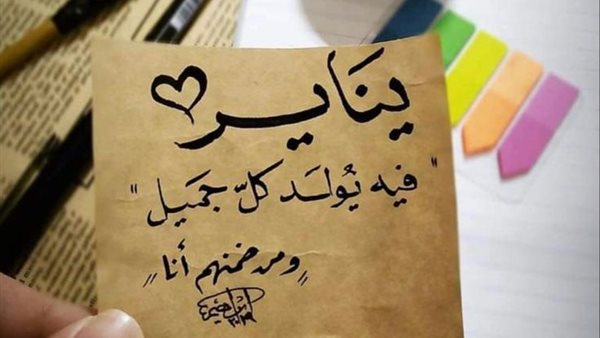 يَنَايـر ♡
" فيه يُولَـد كلّ جَميل "
" ومن ضمنهم أنا "